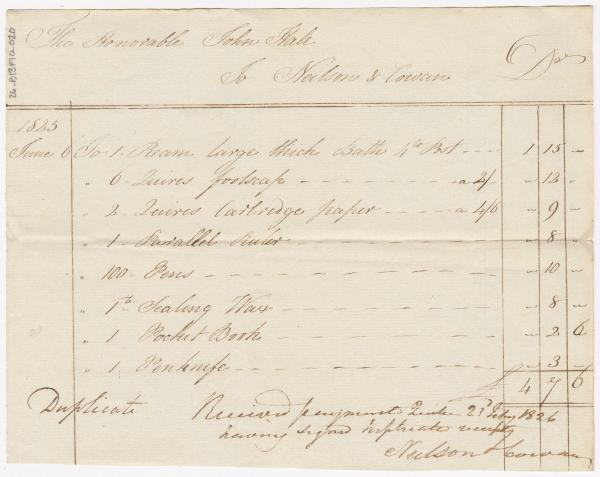 26-B13F10-020
The Honorable John Hale
To Neilson & Cowan Drs
1825
June 6 To 1 - Ream large thick Bath 4to Post --- 1 15 "
" 6 - Quires foolscap ------ a 2/ " 12 "
" 2 - Quires Cartridge paper ---- a 4/6 " 9 "
" 1 - Parallel Ruler ------ " 8 "
" 100 - Pens ------ " 10 "
" 1 lb Sealing Wax ------ " 8 "
" 1 Pocket Book ------ " 2 6
" 1 Penknife ------ " 3 "
£ 4 7 6
Duplicate Received payment Quebec 23d Feby 1826
having signed triplicate receipts
Neilson & Cowan